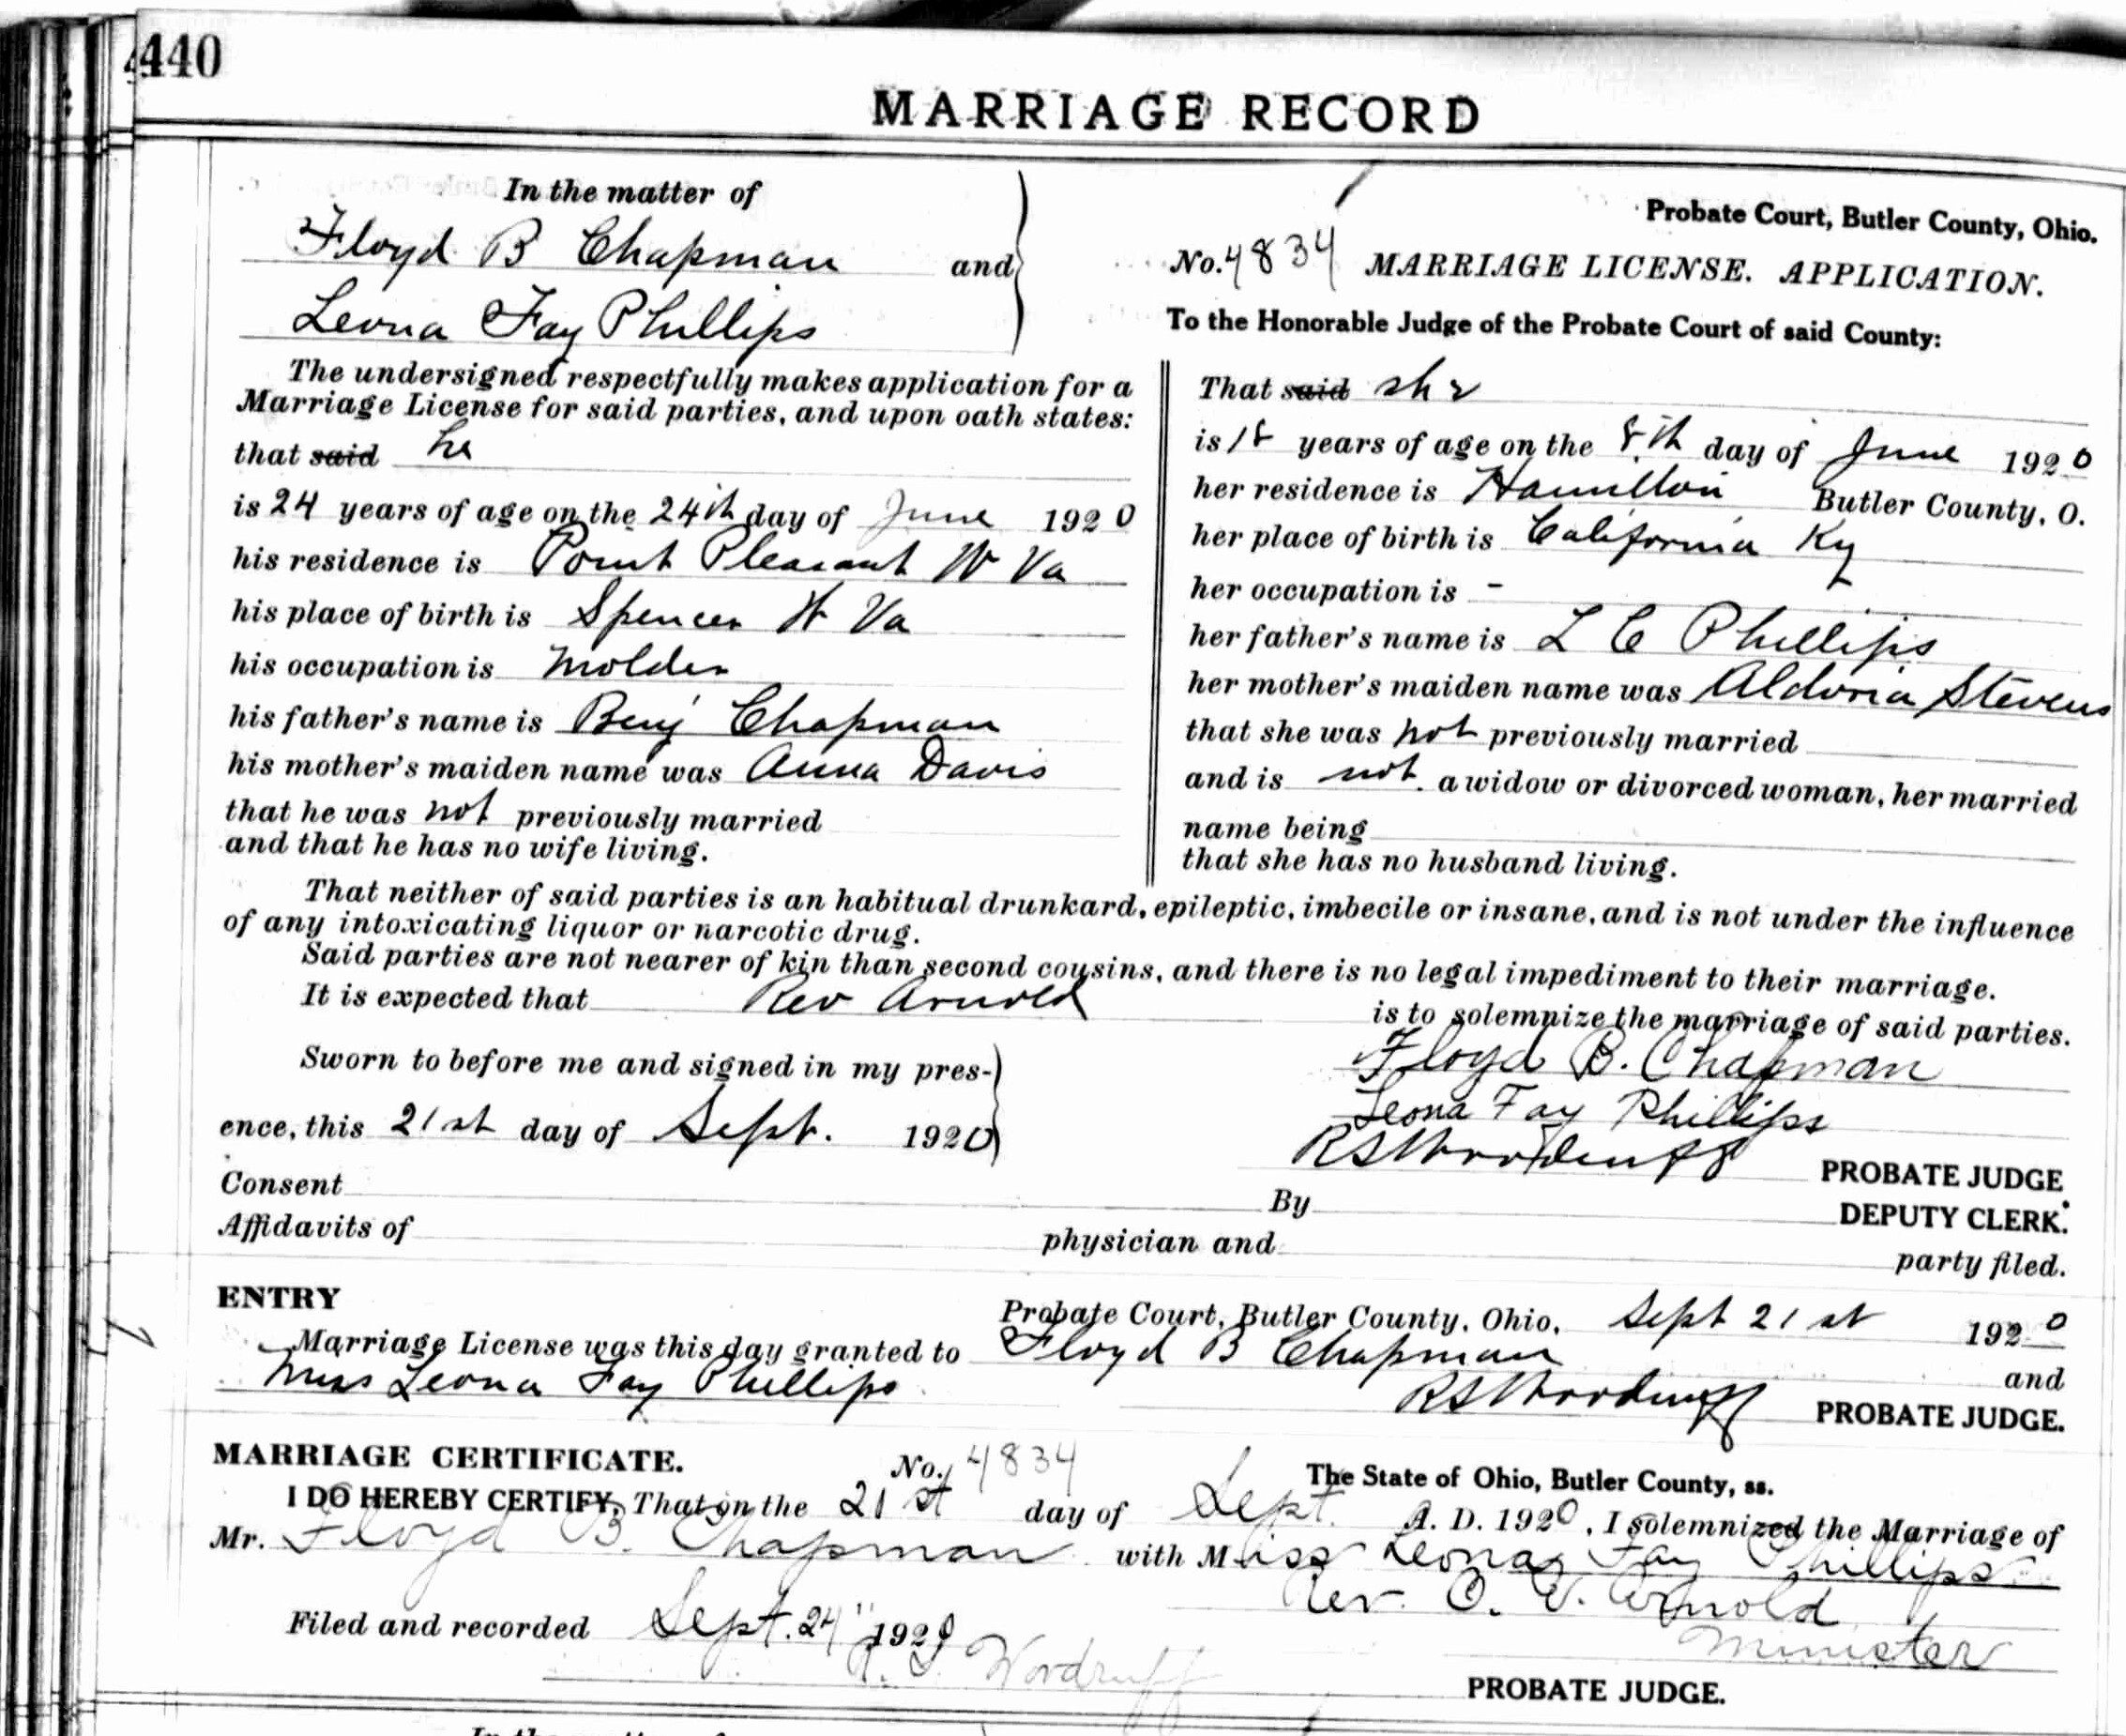 440
MARRIAGE RECORD
In the matter of
Floyd B Chapman and
Leona Fay Phillips
Probate Court, Butler County, Ohio.
No. 4834 MARRIAGE LICENSE. APPLICATION.
To the Honorable Judge of the Probate Court of said County:
The undersigned respectfully makes application for a
Marriage License for said parties, and upon oath states:
that said he
is 24 years of age on the 24th day of June 1920
his residence is Point Pleasant W Va
his place of birth is Spencer W Va
his occupation is Molder
his father's name is Benj Chapman
his mother's maiden name was Anna Davis
that he was not previously married
and that he has no wife living.
That said she
is 18 years of age on the 8th day of June 1920
her residence is Hamilton Butler County, O.
her place of birth is California Ky
her occupation is -
her father's name is L C Phillips
her mother's maiden name was Aldoria Stevens
that she was not previously married
and is not a widow or divorced woman, her married
name being
that she has no husband living.
That neither of said parties is an habitual drunkard, epileptic, imbecile or insane, and is not under the influence
of any intoxicating liquor or narcotic drug.
Said parties are not nearer of kin than second cousins, and there is no legal impediment to their marriage.
It is expected that Rev Arnold is to solemnize the marriage of said parties.
Sworn to before me and signed in my pres-
ence, this 21st day of Sept. 1920
Floyd B. Chapman
Leona Fay Phillips
R S Woodruff PROBATE JUDGE
Consent By DEPUTY CLERK.
Affidavits of physician and party filed.
ENTRY
Probate Court, Butler County, Ohio, Sept 21st 1920
Marriage License was this day granted to Floyd B Chapman and
Miss Leona Fay Phillips R S Woodruff PROBATE JUDGE.
MARRIAGE CERTIFICATE. No. 4834 The State of Ohio, Butler County, ss.
I DO HEREBY CERTIFY, That on the 21st day of Sept. A. D. 1920, I solemnized the Marriage of
Mr. Floyd B. Chapman with Miss Leona Fay Phillips
Rev. O. V. Arnold
Minister
Filed and recorded Sept. 24" 1920
R. S. Woodruff
PROBATE JUDGE.